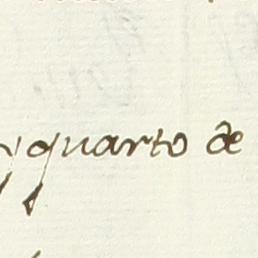 y quarto de